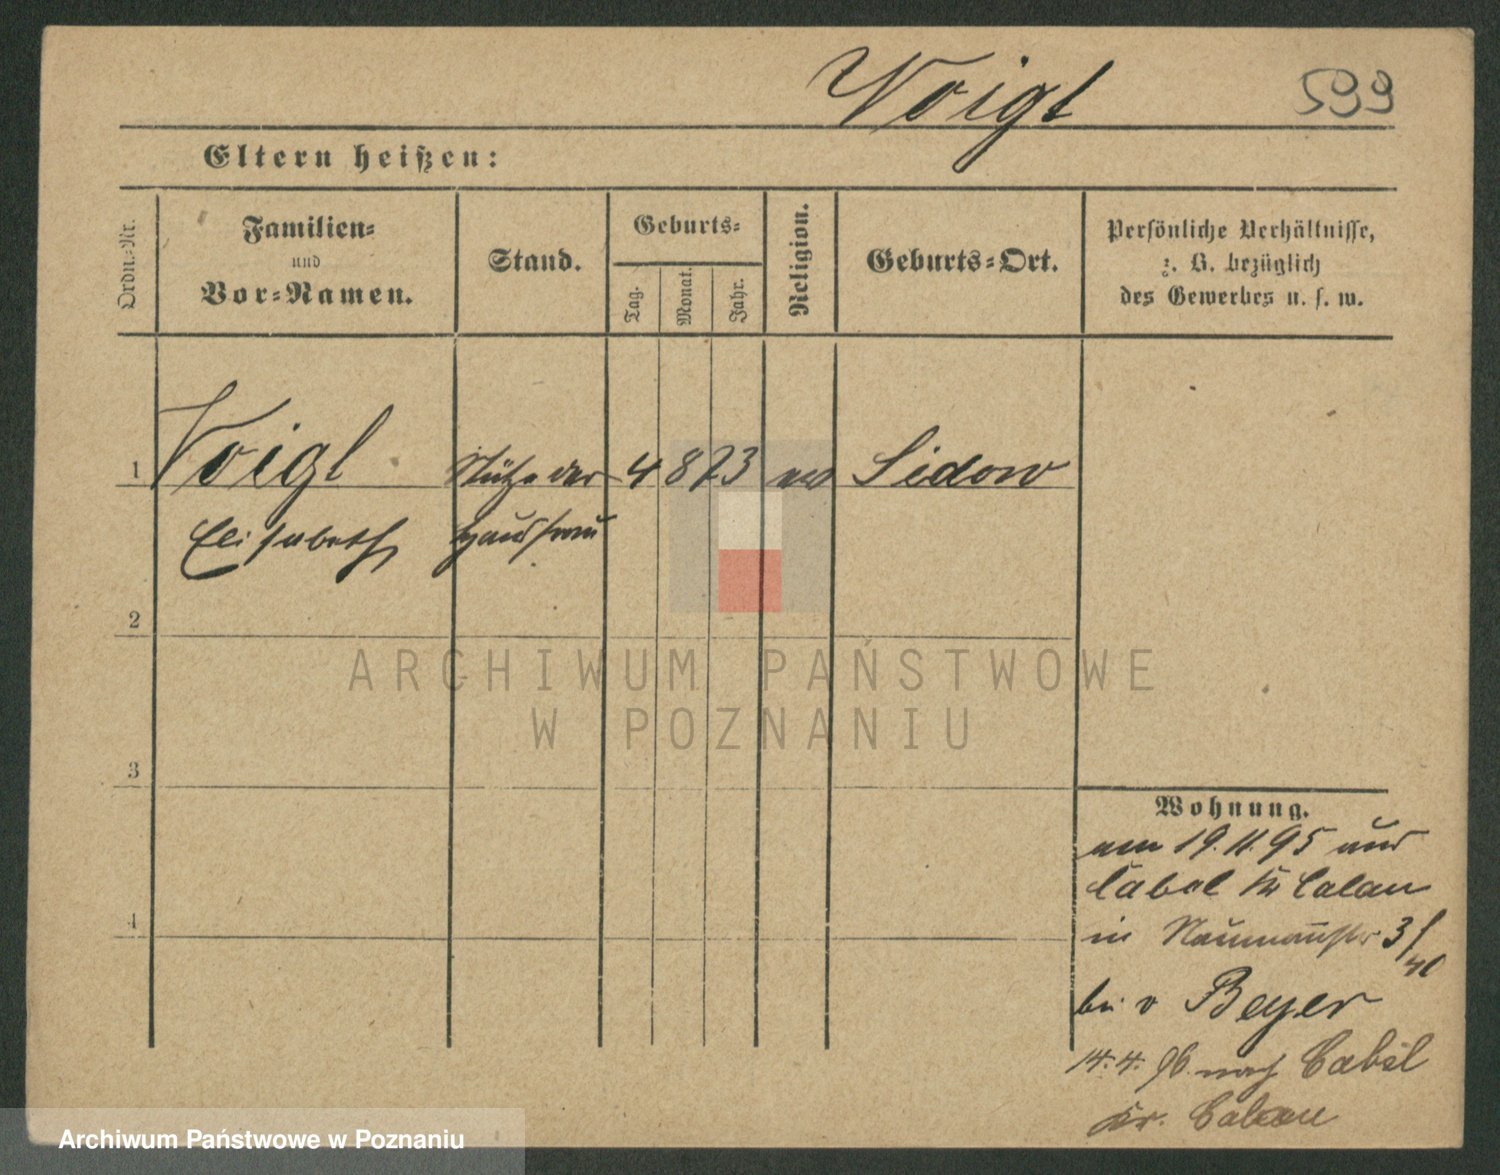 Voigt 599
Eltern heißen:
Ordn.-Nr.
Familien-
und
Vor-Namen.
Stand.
Geburts-
Tag.
Monat.
Jahr.
Religion.
Geburts-Ort.
Persönliche Verhältnisse,
z. B. bezüglich
des Gewerbes u. s. w.
1 Voigt Stütze der 4 8 73 ev Sidow
Elisabeth Hausfrau
2
3
4
Wohnung.
am 19.11.95 aus
Cabel Kr Calau
in Naumannstr 3/
40
bei v Beyer
14.4.96 nach Cabel
Kr. Calau
ARCHIWUM PAŃSTWOWE
W POZNANIU
Archiwum Państwowe w Poznaniu